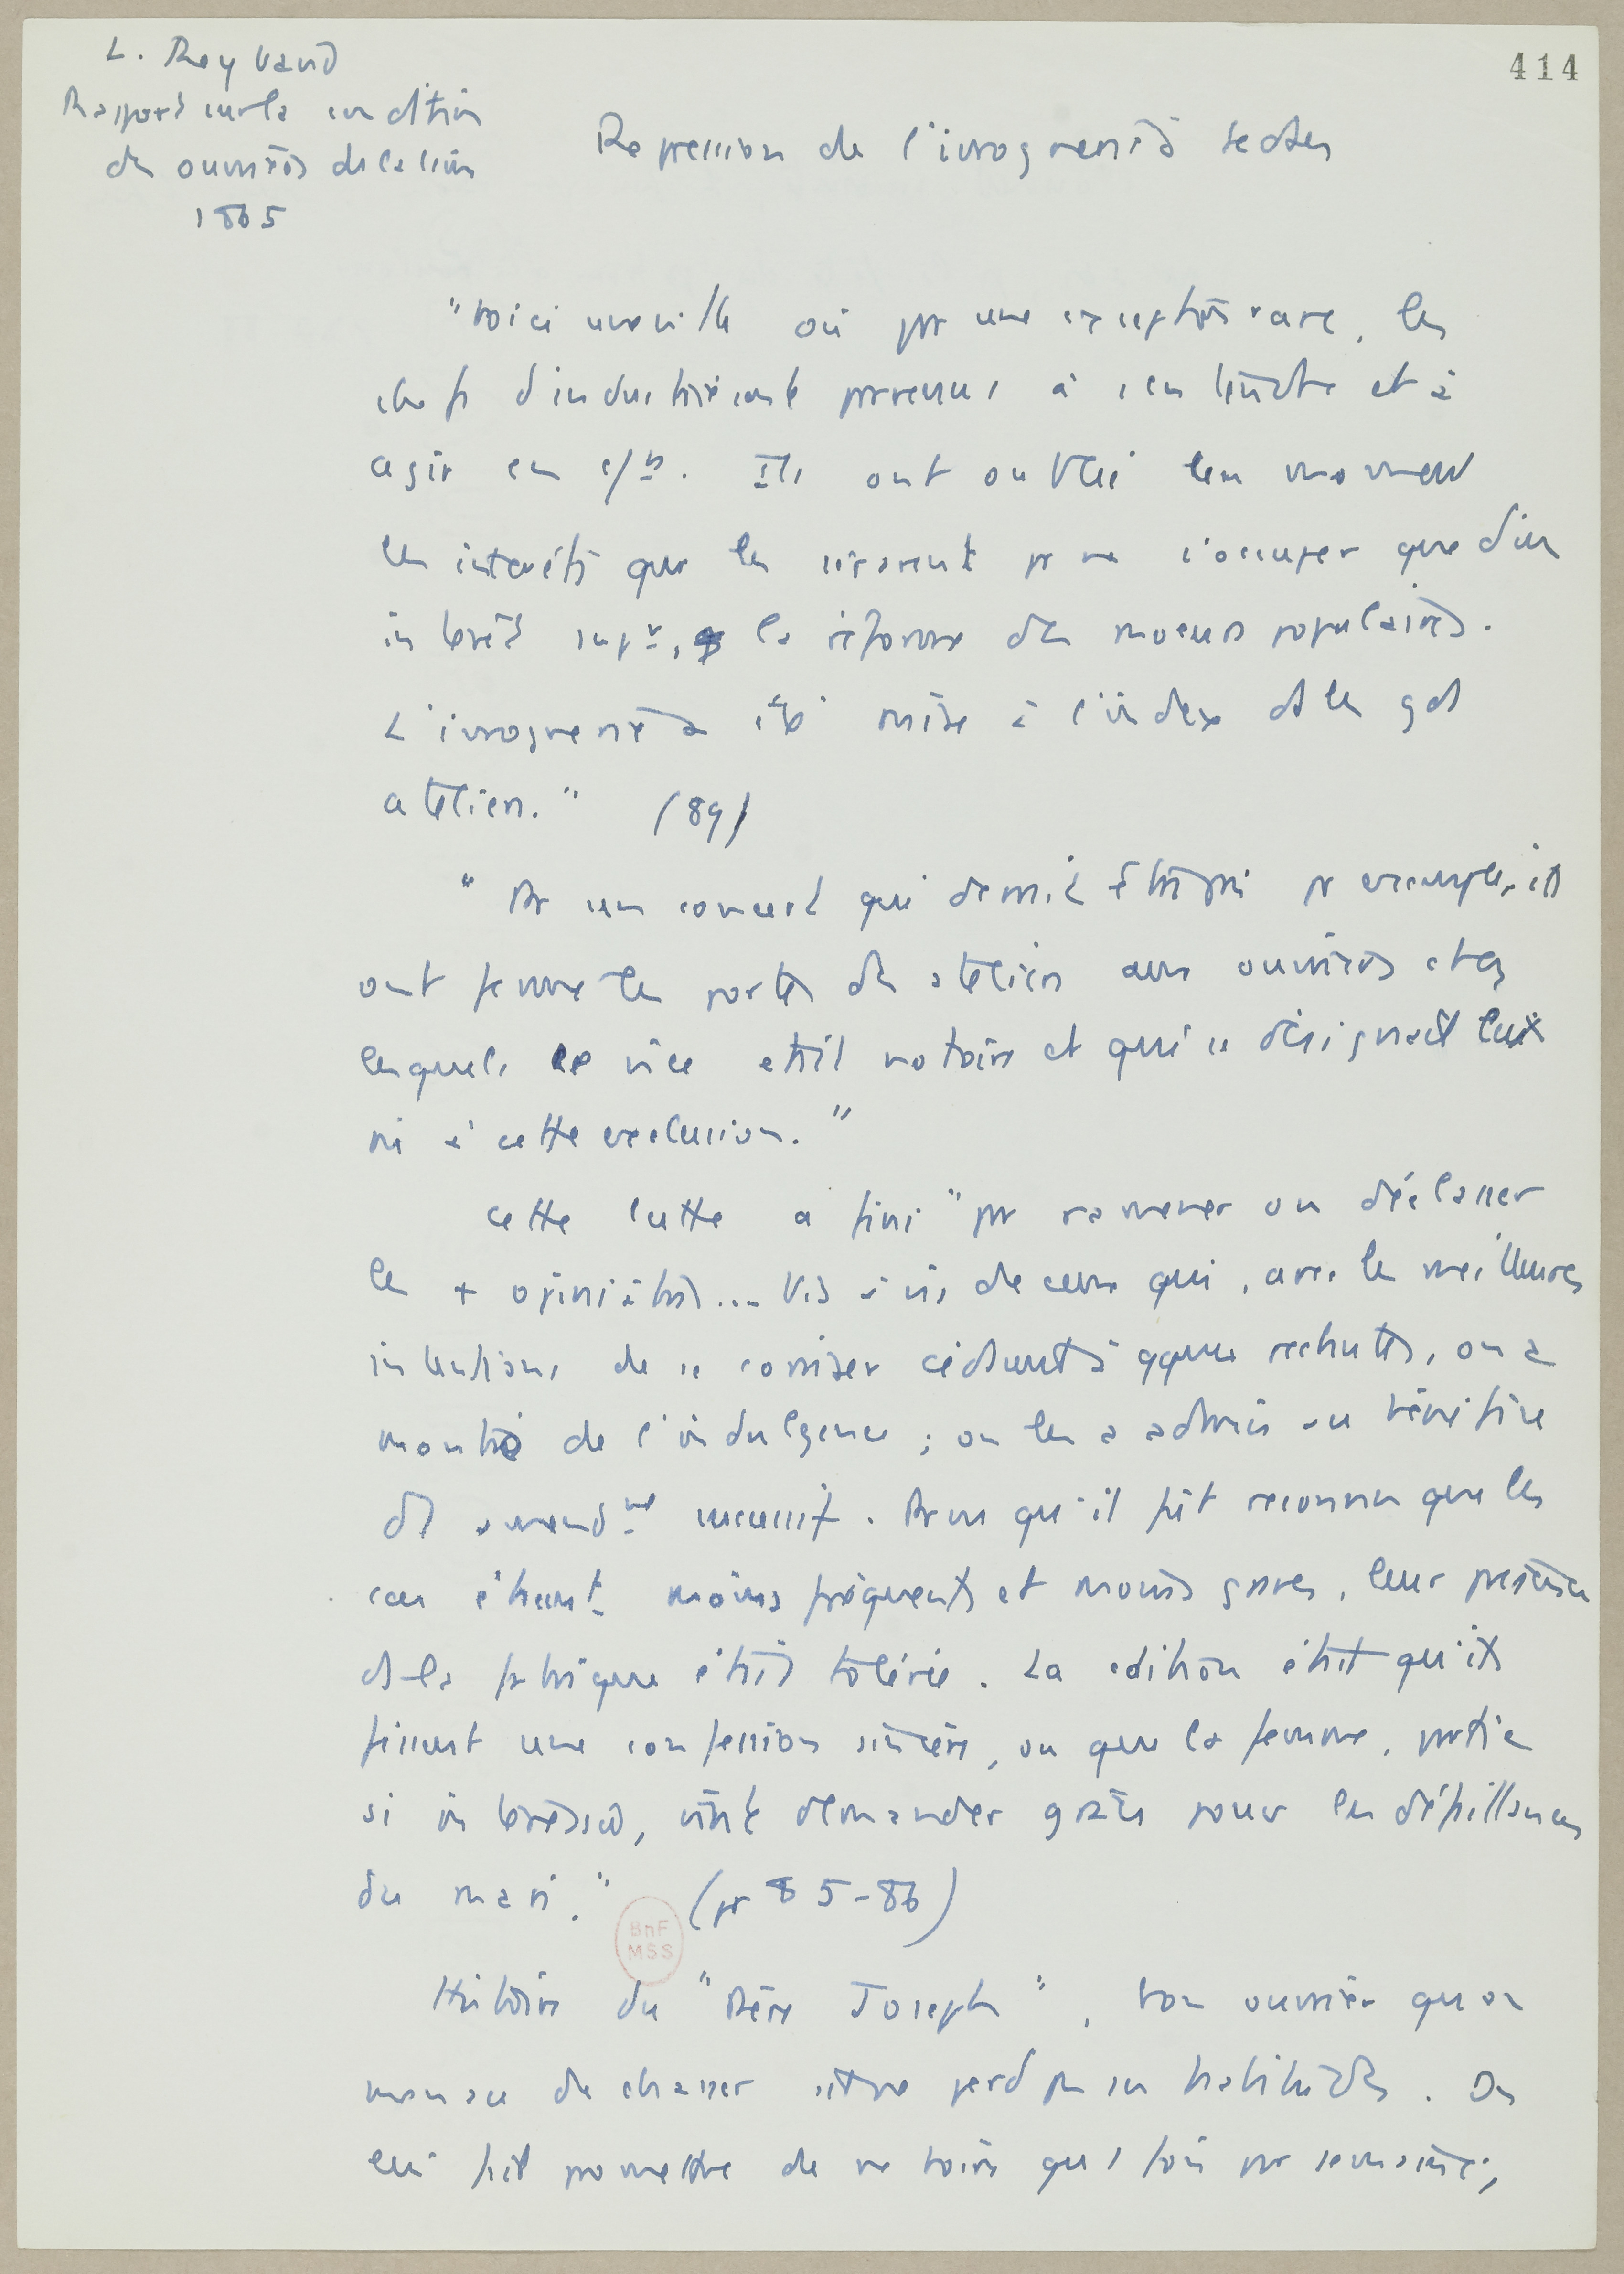 L. Reybaud
Rapport sur la condition
des ouvriers de la laine
1865
414
Repression de l'ivrognerie à Sedan
"Voici une ville où pr une exception rare, les
chefs d'industrie sont parvenus à s'entendre et à
agir en c/n. Ils ont oublié leur moment
les intérêts que les séparent pr ne s'occuper que d'un
intérêt supr, la réforme des moeurs populaires.
L'ivrognerie a été mise à l'index ds les gds
ateliers." (89)
" Par un concert qui devrait être pris pr exemple, ils
ont fermé les portes des ateliers aux ouvriers chez
lesquels le vice était notoire et qui se désignaient eux
mê à cette exclusion."
Cette lutte a fini "pr ramener ou déclasser
les + opiniâtres... Vis à vis de ceux qui, avec les meilleures
intentions de se corriger cédaient à qques rechutes, on a
montré de l'indulgence ; on les a admis au bénéfice
d'1 amendmt successif. Pourvu qu'il fût reconnu que les
cas étaient moins fréquents et moins graves, leur présence
ds la fabrique était tolérée. La cdition était qu'ils
fissent une confession sincère, ou que la femme, partie
si intéressée, vînt demander grâce pour les défaillances
du mari." (pp 85-86)
Histoire du "Père Joseph", bon ouvrier qu'on
menace de chasser s'il ne perd pas ses habitudes. On
lui fait promettre de ne boire qu'1 fois par semaine,